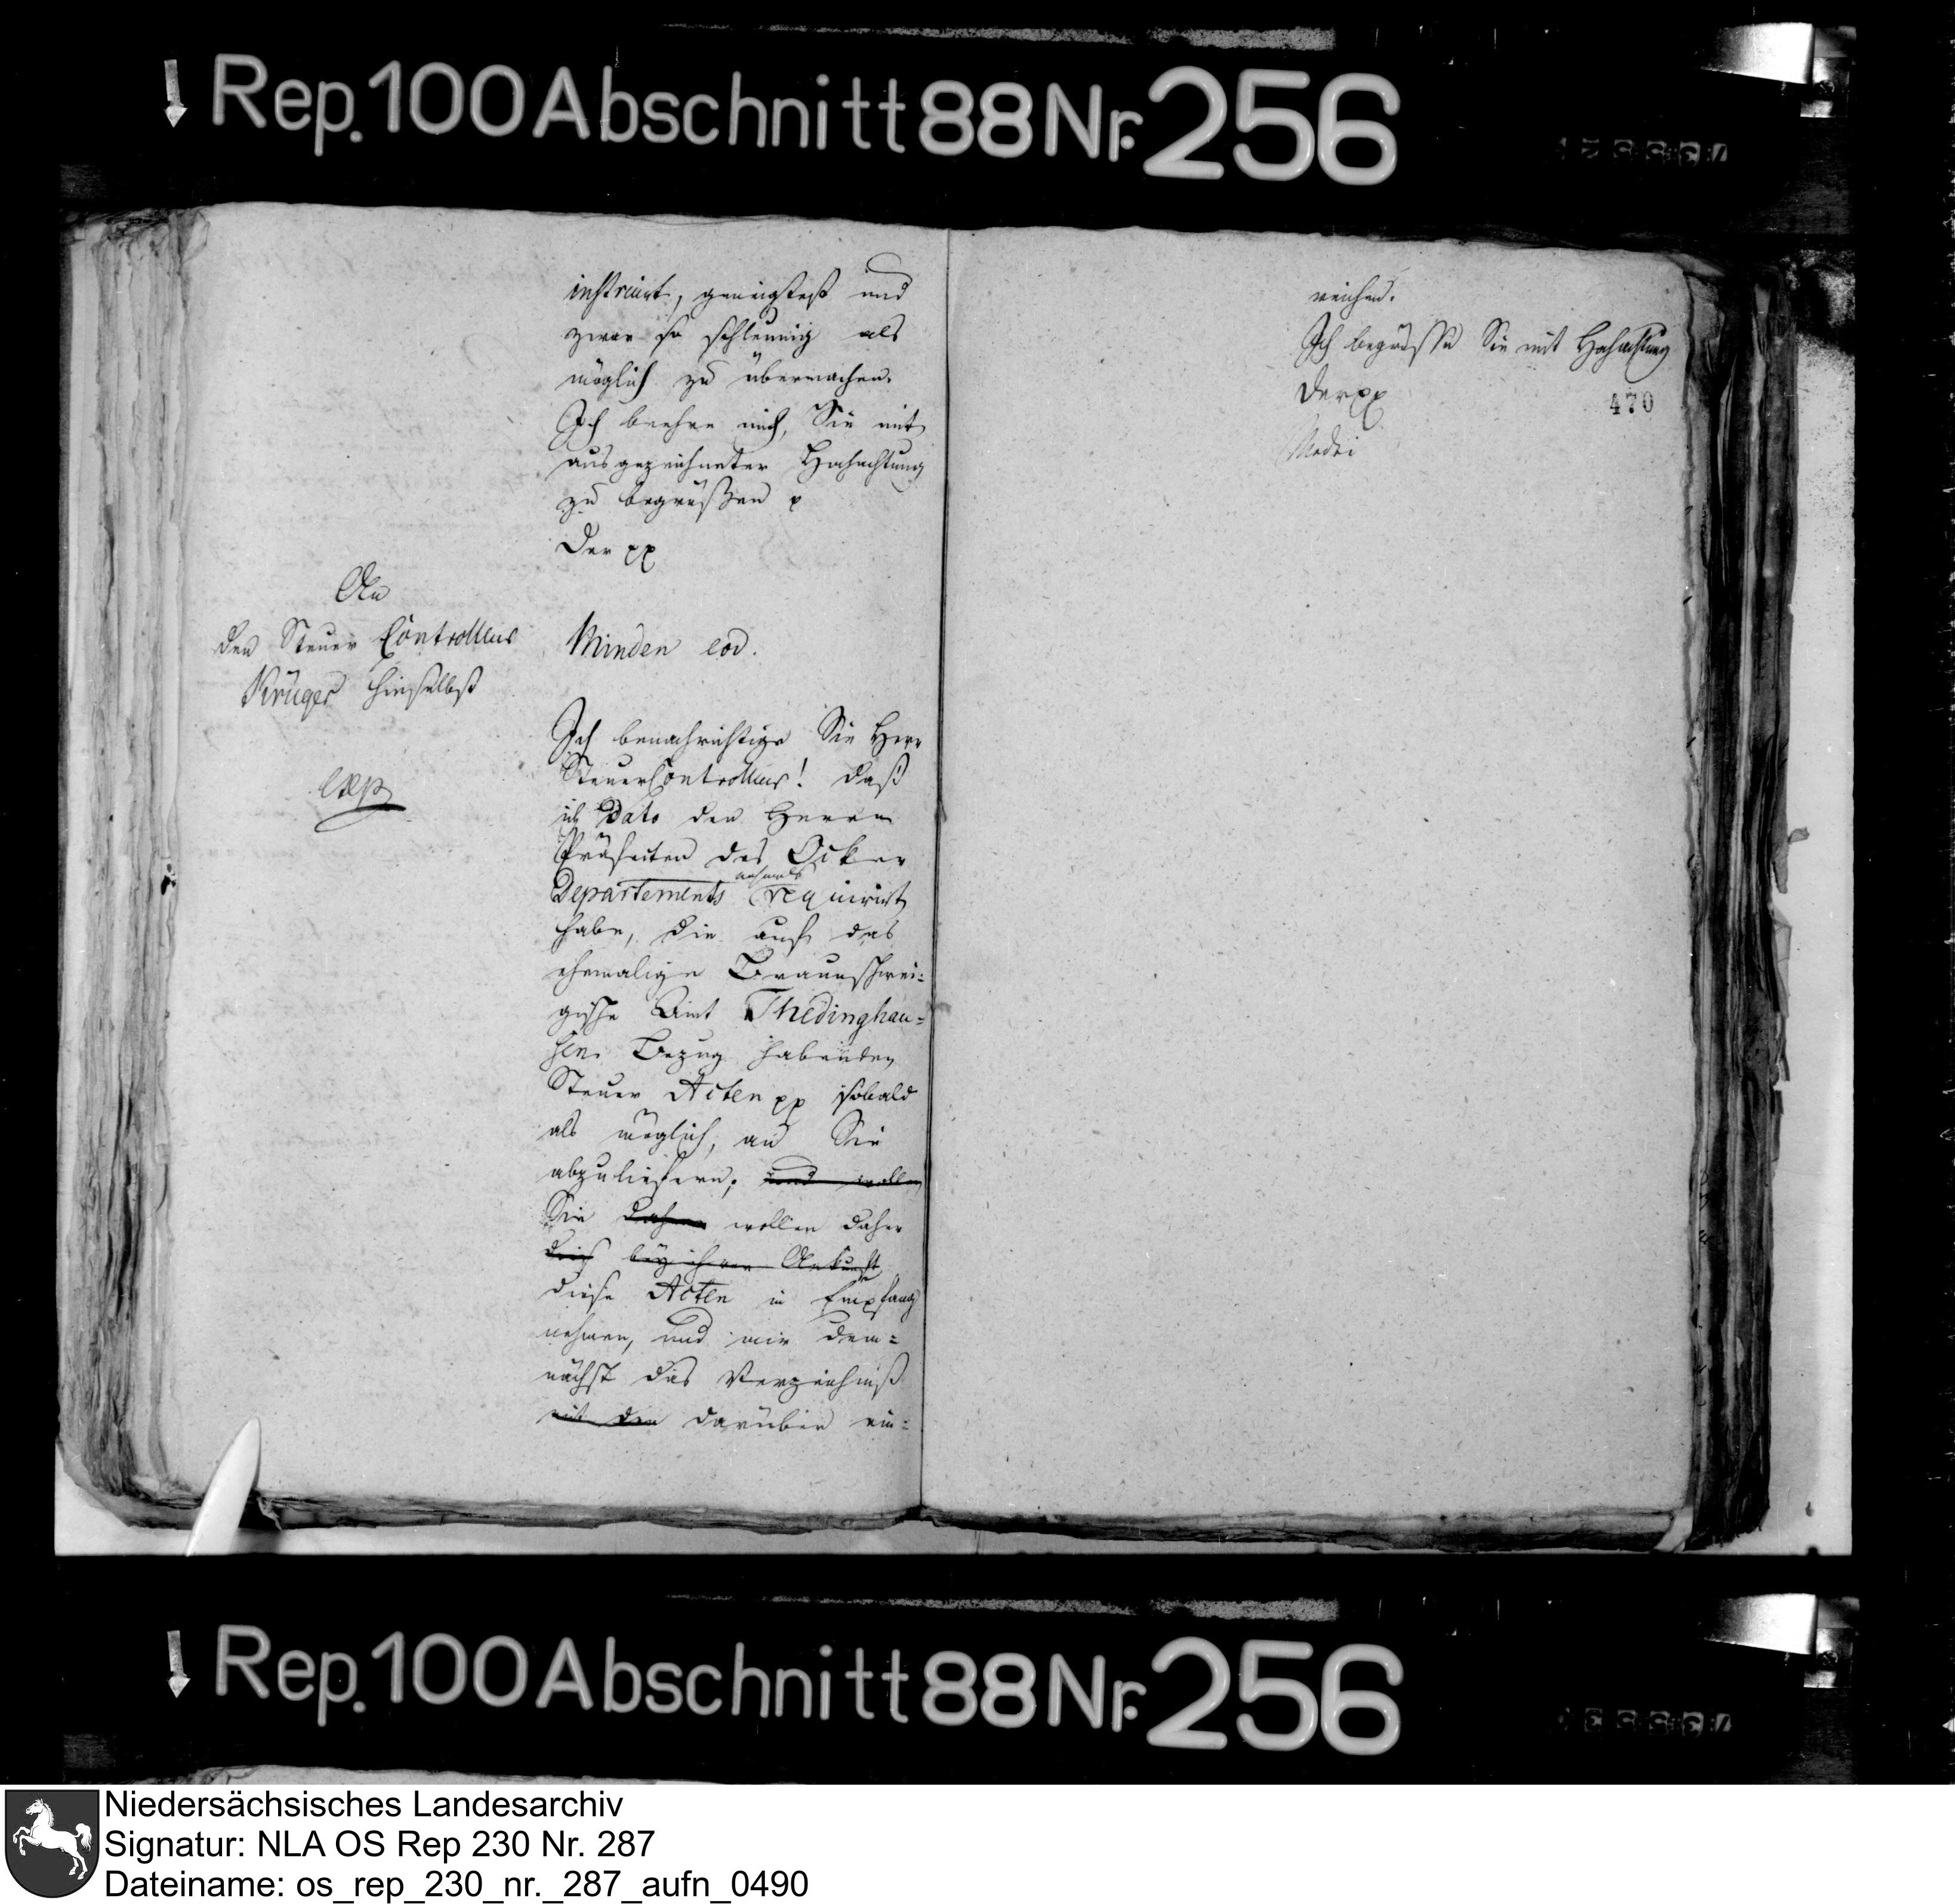 Rep. 100 Abschnitt 88 Nr. 256
instruirt, geneigtest und
zwar so schleunig als
möglich zu übermachen.
Ich beehre mich, Sie mit
ausgezeichneter Hochachtung
zu begrüßen p
Der pp
An
den Steuer Controlleur
Krüger hieselbst
exp
Minden eod.
Ich benachrichtige Sie Herr
Steuer Controlleur! daß
ich Dato den Herrn
Präfecten des Ocker
Departements nochmals requirirt
habe, die auf das
ehemalige Braunschwei=
gische Amt Thedinghau=
sen Bezug habenden
Steuer Acten pp sobald
als möglich, an Sie
abzuliefern; und wollen
Sie daher wollen daher
dies bey ihrer Ankunft
diese Acten in Empfang
nehmen, und mir dem=
nächst das Verzeichniß
mit den darüber ein=
reichen.
Ich begrüsse Sie mit Hochachtung
Der pp
470
Rep. 100 Abschnitt 88 Nr. 256
Niedersächsisches Landesarchiv
Signatur: NLA OS Rep 230 Nr. 287
Dateiname: os_rep_230_nr._287_aufn_0490